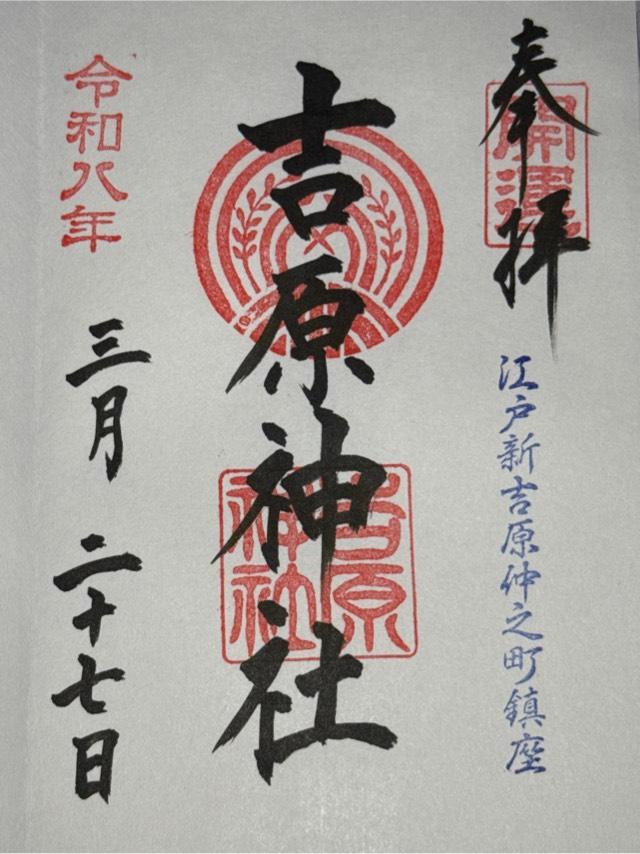 奉拝
開運
江戸新吉原仲之町鎮座
吉原神社
吉原
神社
令和八年
三月二十七日